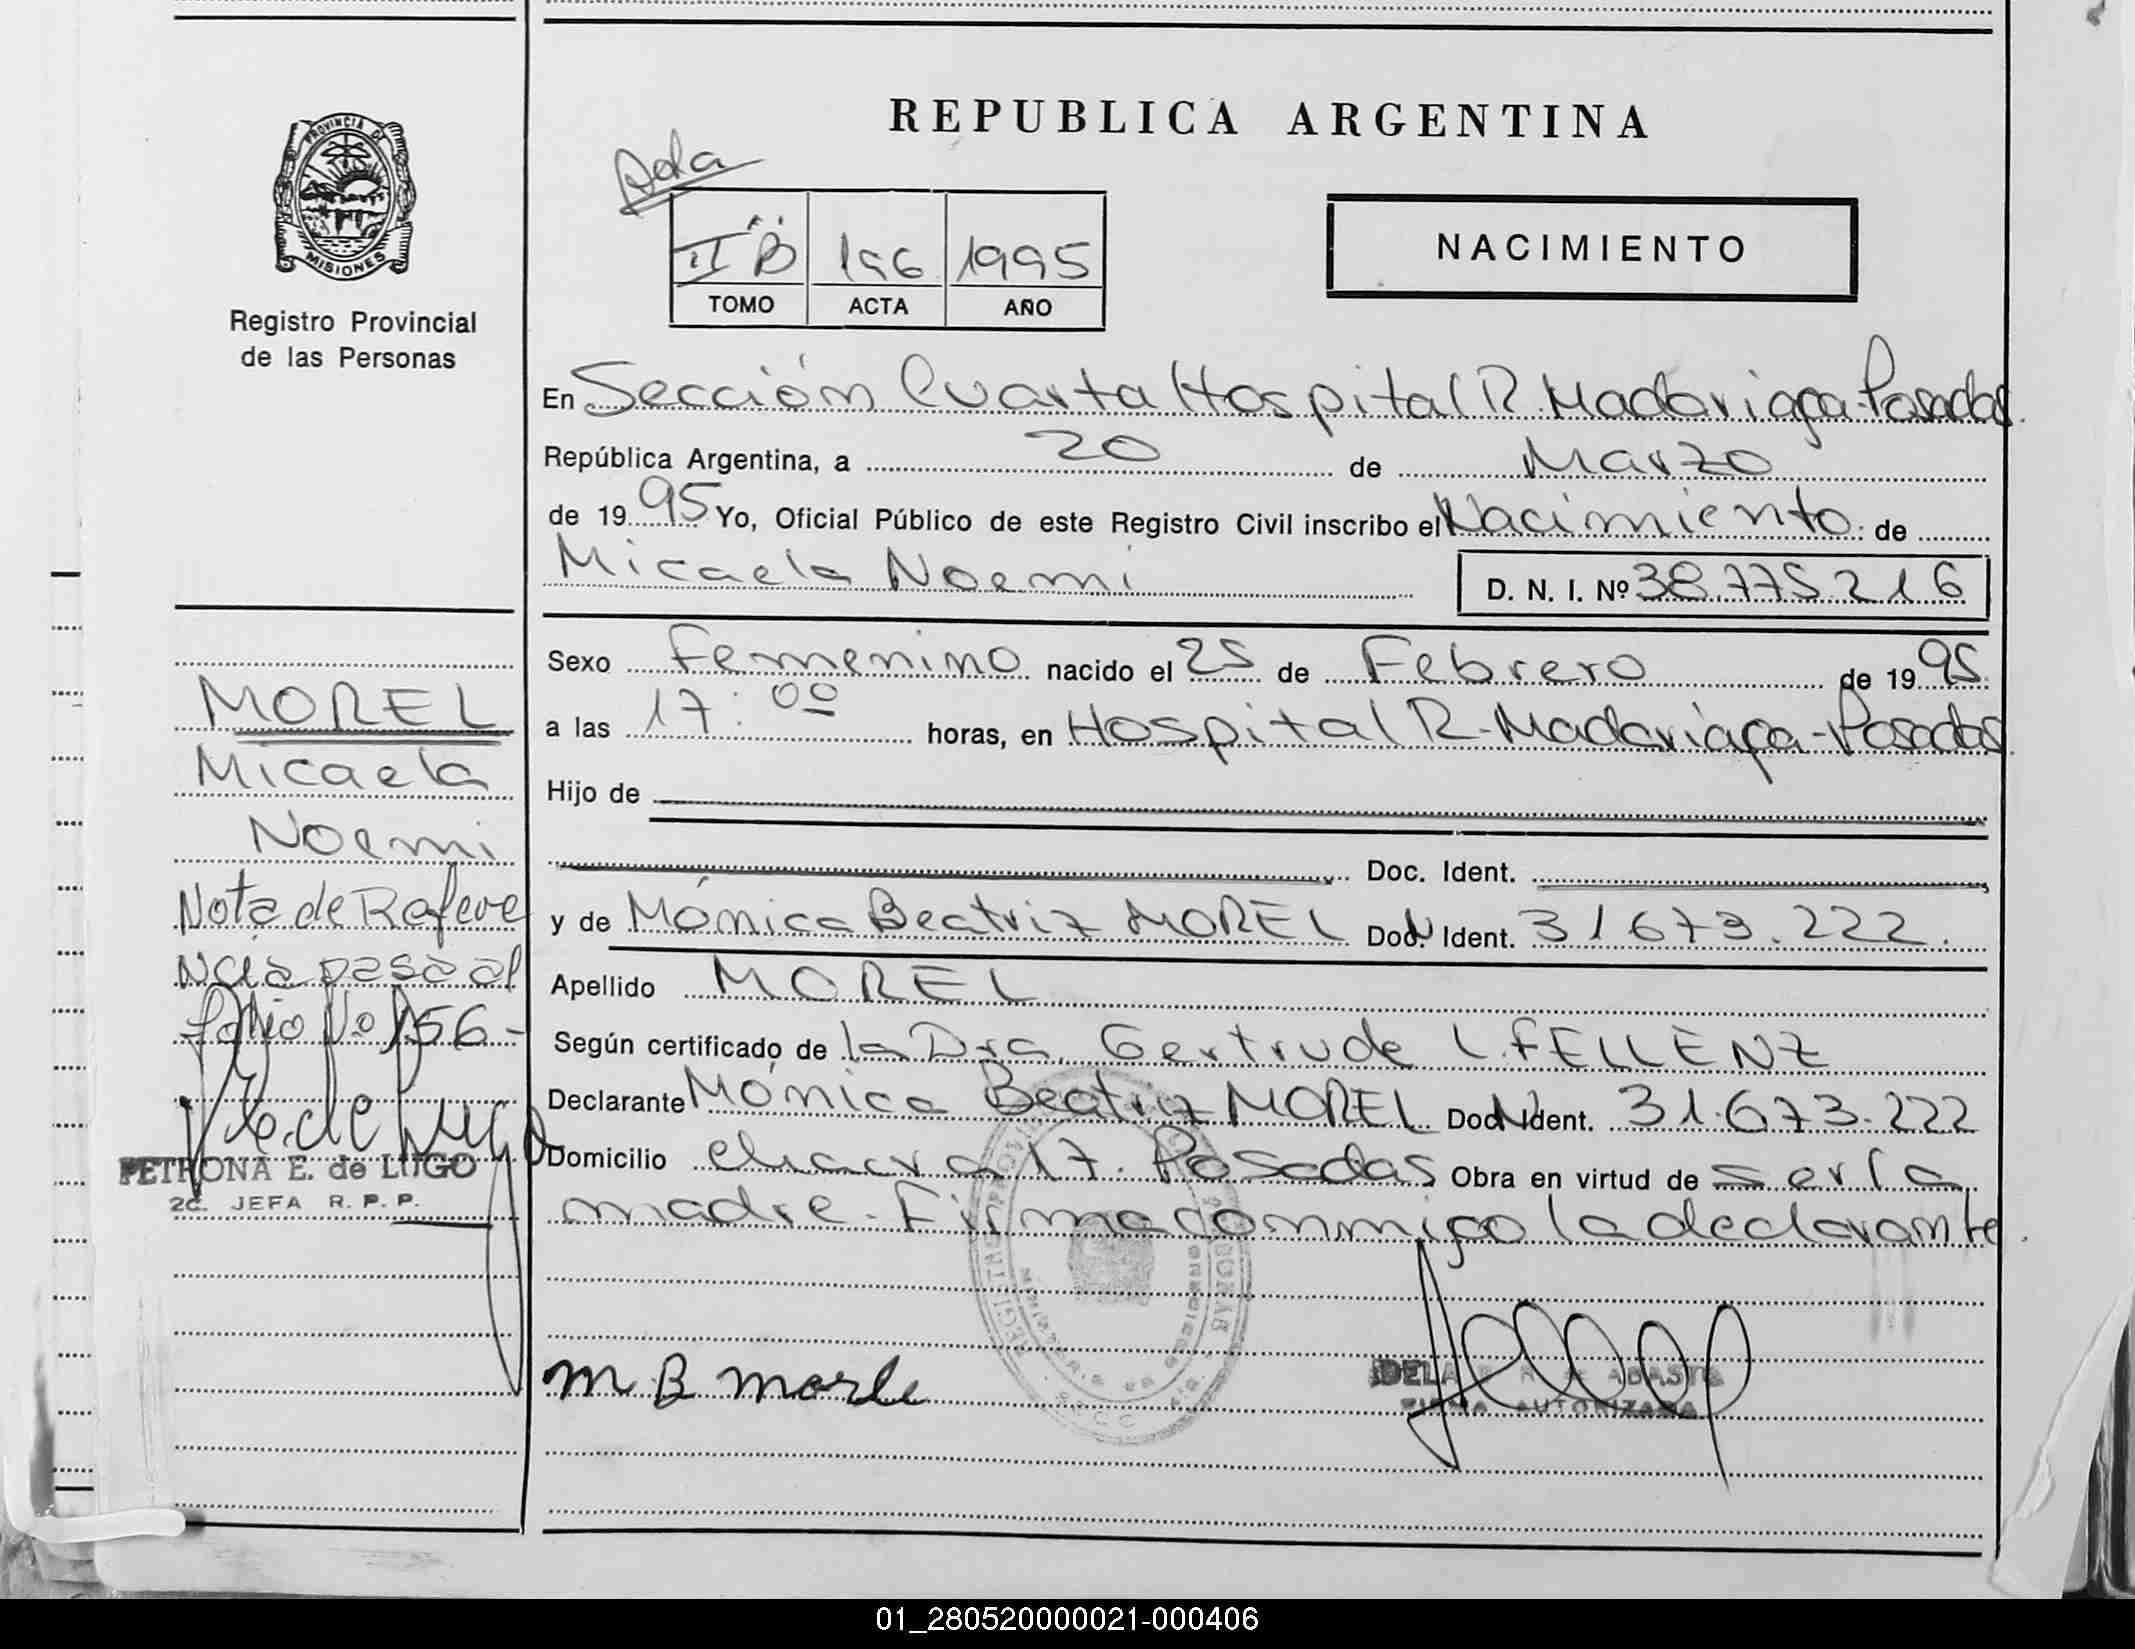 PROVINCIA DE
MISIONES
Registro Provincial
de las Personas
REPUBLICA ARGENTINA
II B 196 1995
TOMO ACTA AÑO
NACIMIENTO
En Sección Cuarta Hospital R. Madariaga-Posadas.
República Argentina, a 20 de Marzo
de 1995 Yo, Oficial Público de este Registro Civil inscribo el Nacimiento de
Micaela Noemi D. N. I. Nº 38.775.216
Sexo femenino nacido el 25 de Febrero de 1995
a las 17:00 horas, en Hospital R. Madariaga-Posadas
Hijo de
Doc. Ident.
y de Mónica Beatriz MOREL Doc. Ident. 31673.222.
Apellido MOREL
Según certificado de la Dra. Gertrude L. FELLENZ
Declarante Mónica Beatriz MOREL Doc. Ident. 31.673.222
Domicilio chacra 17. Posadas Obra en virtud de ser la
madre. Firma conmigo la declarante.
M B Morle
FIRMA AUTORIZADA
MOREL
Micaela
Noemi
Nota de Refere
ncia pasa al
folio Nº 156-
PETRONA E. de LUGO
2da. JEFA R. P. P.
01_280520000021-000406